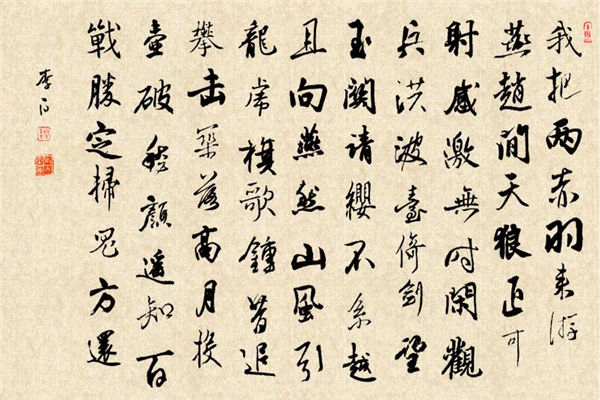 我把两赤羽来游
燕趙间天狼正可
射感激無时閑觀
兵洪波臺倚劍望
玉関请纓不系越
且向燕然山風引
龍虎旗歌鍾昔追
攀击築落高月投
壺破愁顏遥知百
戰勝定掃鬼方還
李白